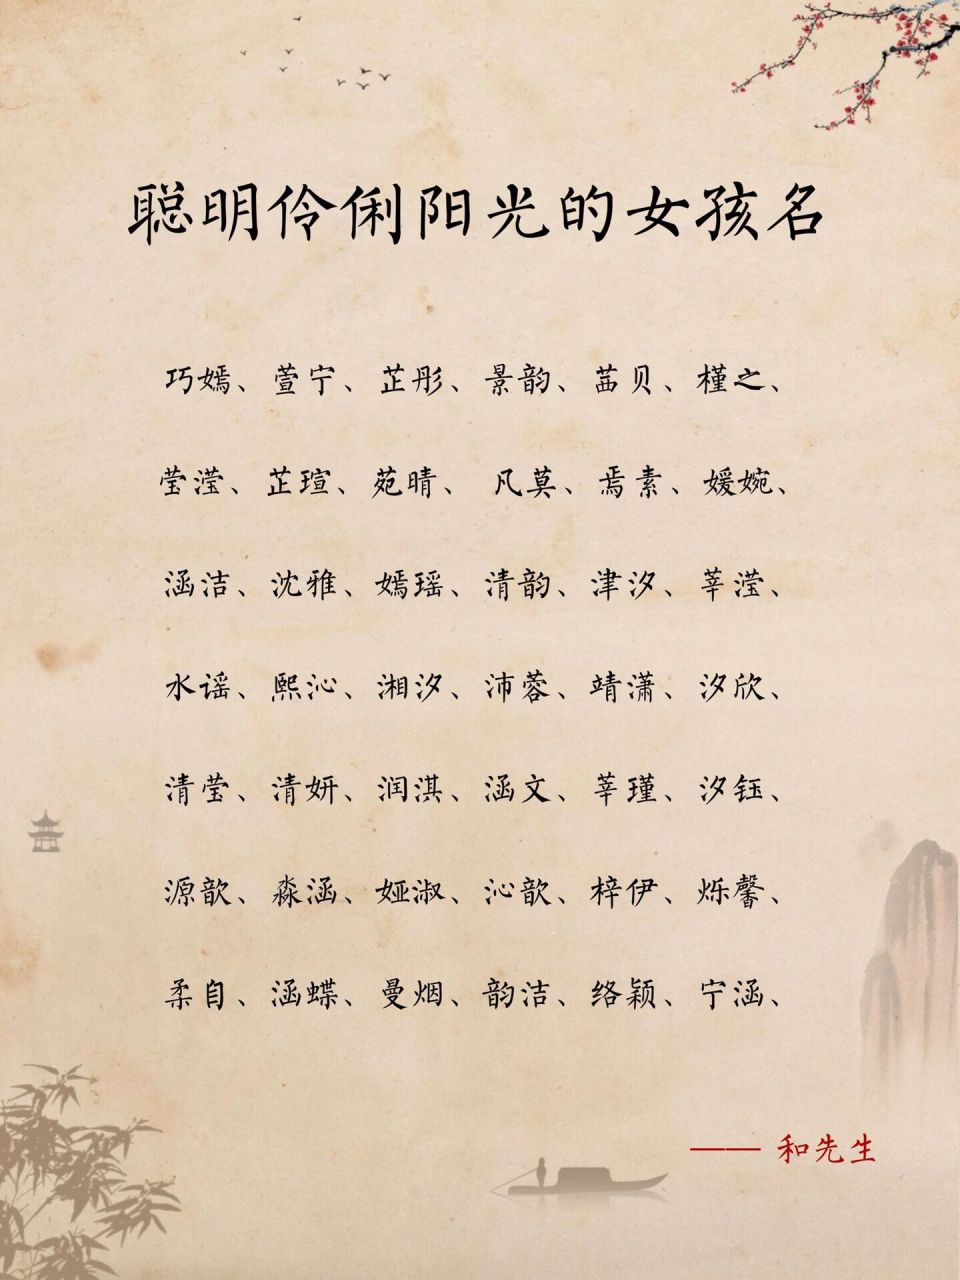 聪明伶俐阳光的女孩名
巧嫣、萱宁、芷彤、景韵、茁贝、槿之、
莹滢、芷瑄、苑晴、凡莫、焉素、媛婉、
涵洁、沈雅、嫣瑶、清韵、津汐、莘滢、
水谣、熙沁、湘汐、沛蓉、靖潇、汐欣、
清莹、清妍、润淇、涵文、莘瑾、汐钰、
源歆、淼涵、娅淑、沁歆、梓伊、烁馨、
柔自、涵蝶、曼烟、韵洁、络颖、宁涵、
—— 和先生